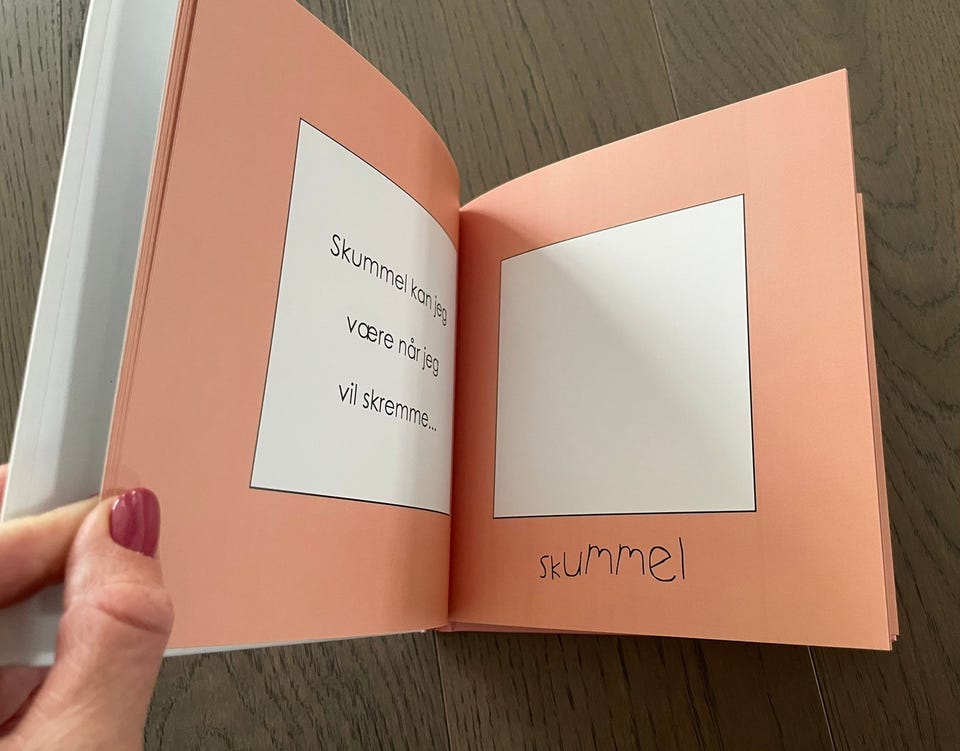 Skummel kan jeg
være når jeg
vil skremme...
skummel